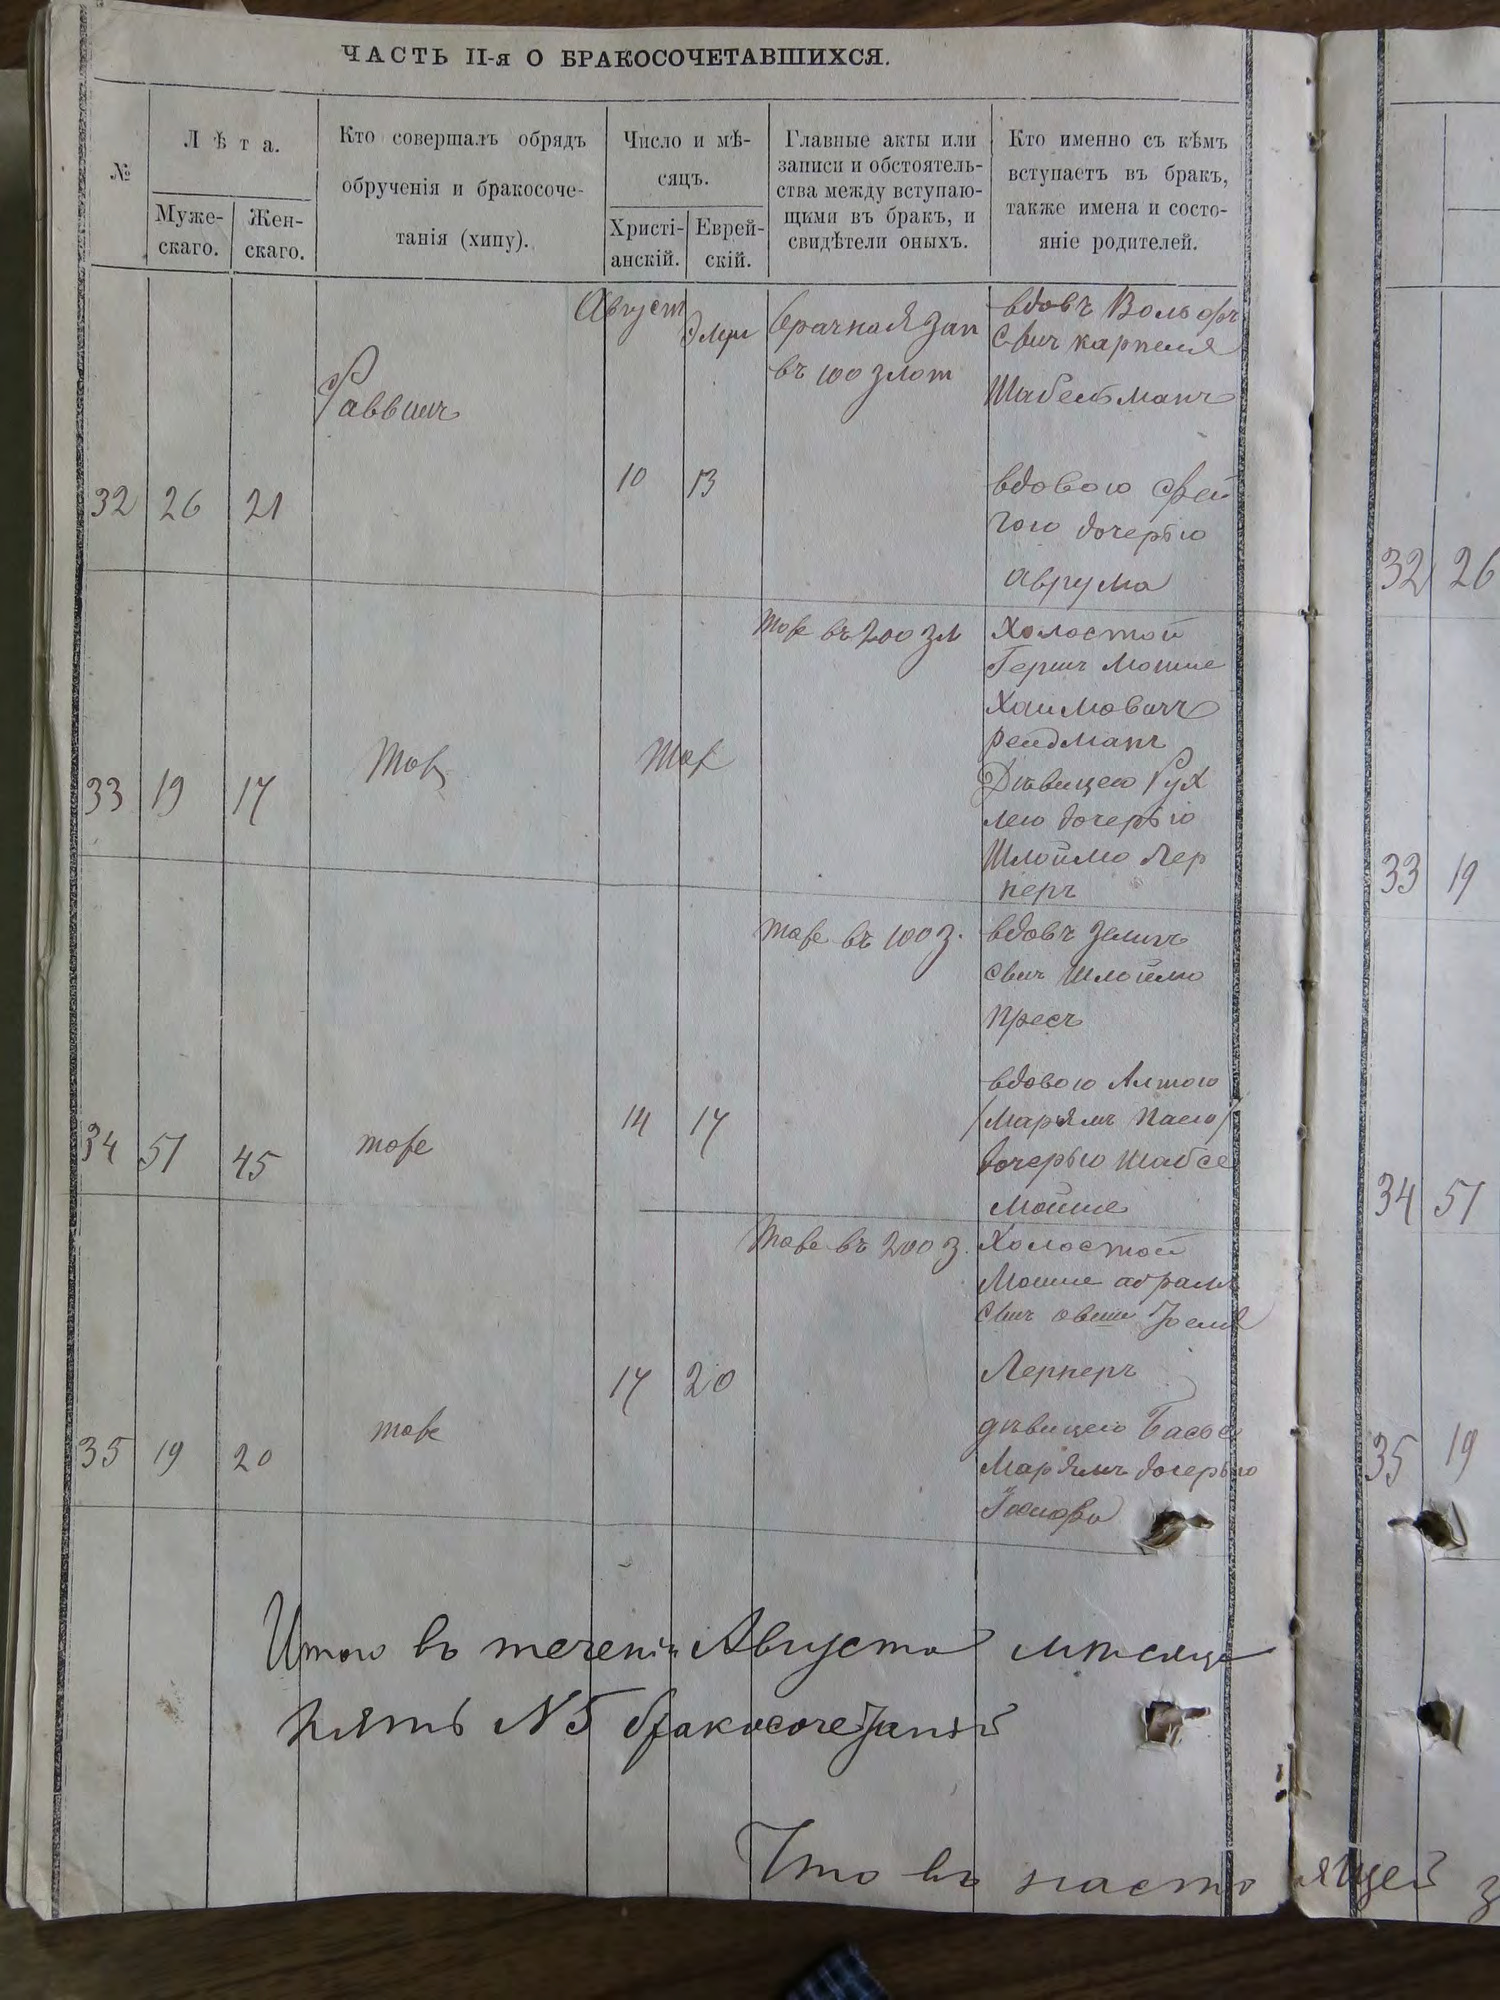 ЧАСТЬ II-я О БРАКОСОЧЕТАВШИХСЯ.
№
Лѣта.
Муже-
скаго.
Жен-
скаго.
Кто совершалъ обрядъ
обрученія и бракосоче-
танія (хипу).
Число и мѣ-
сяцъ.
Христі-
анскій.
Еврей-
скій.
Главные акты или
записи и обстоятель-
ства между вступаю-
щими въ бракъ, и
свидѣтели оныхъ.
Кто именно съ кѣмъ
вступаетъ въ бракъ,
также имена и состо-
яніе родителей.
32 26 21
Раввинъ
Август
10
Элул
13
брачная зап
въ 100 злот
вдовъ Вольфъ
Карпеля
Шабельманъ
вдовою Фей
гою дочерью
Аврума
33 19 17
Тоже
Тоже
тоже въ 200 зл
Холостой
Гершъ Мошие
Хаимовичъ
Рейдманъ
Дѣвицею Рух
лею дочерью
Шлоймо Лер
неръ
34 51 45
тоже
14 17
тоже въ 100 з.
вдовъ Зелигъ
Шлоймо
Пресъ
вдовою Алтою
/Марьямъ Пасею/
дочерью Шабсе
Мошие
35 19 20
тоже
17 20
тоже въ 200 з.
Холостой
Мошие абрамъ
Лернеръ
дѣвицею Бася
Марьямъ дочерью
Итого въ теченіи Августа мѣсяца
пять №5 бракосочетаній
Что въ настоящей з
32 26
33 19
34 51
35 19